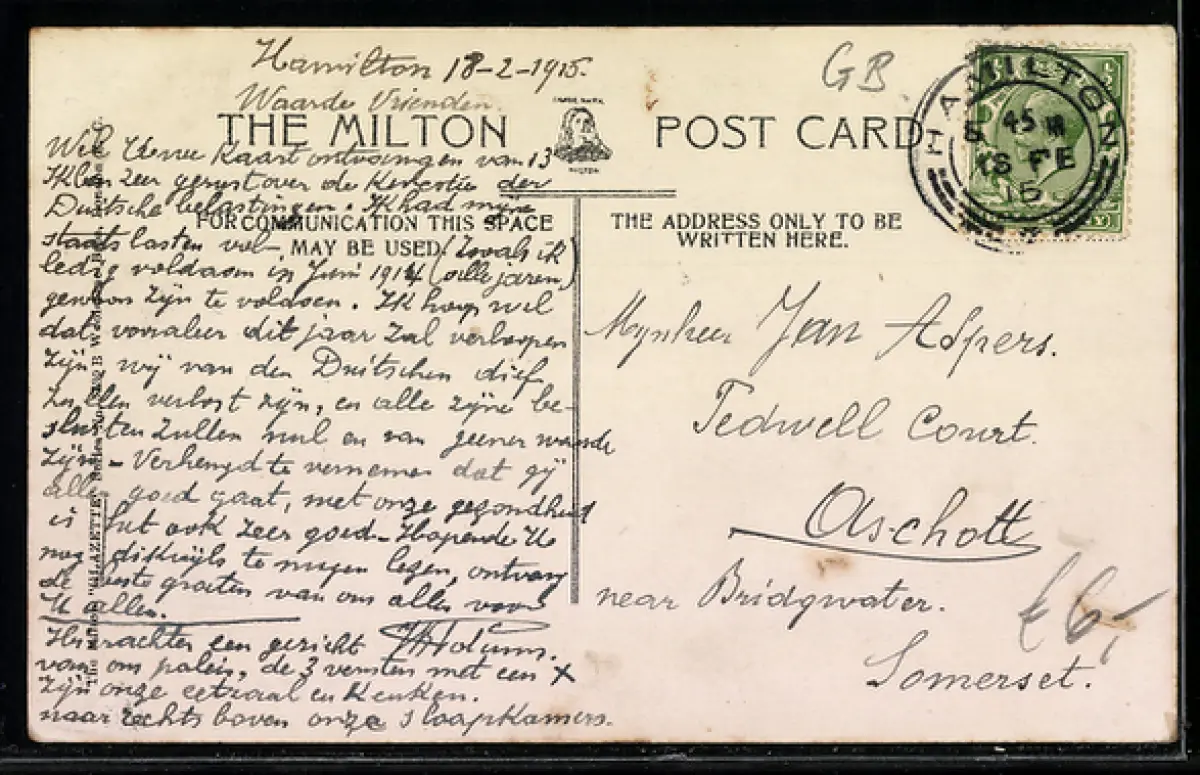 Hamilton 18-2-1915.
Waarde Vrienden.
THE MILTON POST CARD
TRADE MARK
MILTON
GB
HAMILTON
45
18 FE
15
FOR COMMUNICATION THIS SPACE
MAY BE USED
THE ADDRESS ONLY TO BE
WRITTEN HERE.
Wel Uwe Kaart ontvangen van 13
Ik ben zeer gerust over de Kwestie der
Duitsche belastingen. Ik had mijne
staatslasten vol- (zooals ik
ledig voldaan in Juni 1914 (alle jaren)
gewoon zijn te voldoen. Ik hoop wel
dat vooraleer dit jaar zal verloopen
zijn wij van den Duitschen dief
zullen verlost zijn, en alle zijne be-
sluiten zullen nul en van geener waarde
zijn - Verheugd te vernemen dat gij
allen goed gaat, met onze gezondheid
is het ook zeer goed - Hopende U
nog dikwijls te mogen lezen, ontvang
de beste groeten van ons allen voor
U allen.
Hierachter een gezicht
van ons paleis, de 3 vensten met een X
zijn onze eetzaal en Keuken.
naar rechts boven onze slaapkamers.
Mynheer Jan Aspers.
Tedwell Court.
Aschott
near Bridgwater.
Somerset.
£6,